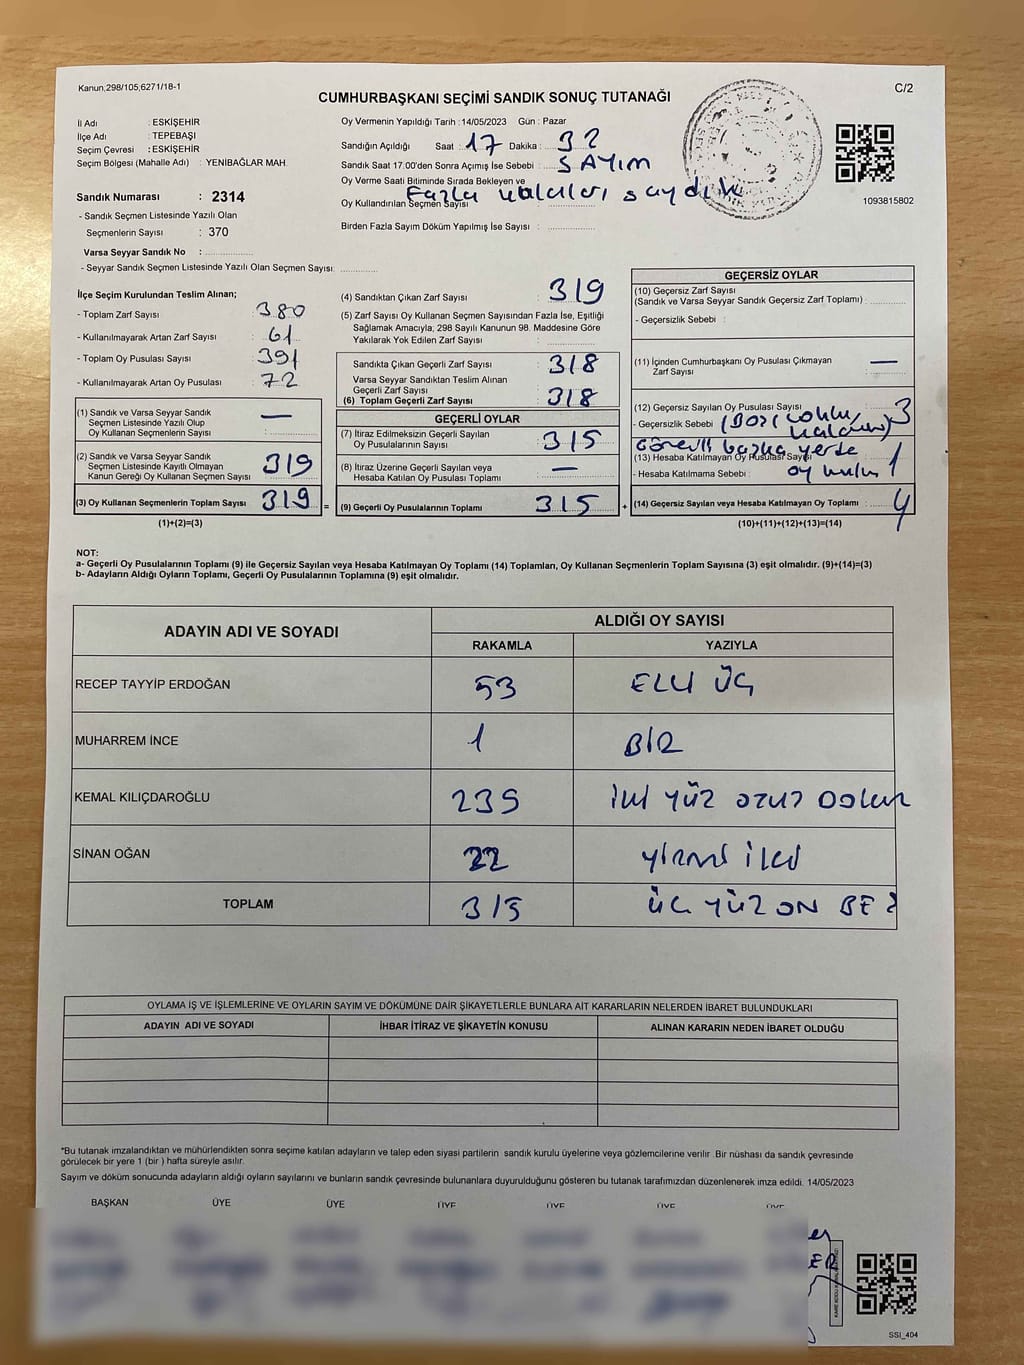 Kanun;298/105;6271/18-1
C/2
CUMHURBAŞKANI SEÇİMİ SANDIK SONUÇ TUTANAĞI
İl Adı : ESKİŞEHİR
İlçe Adı : TEPEBAŞI
Seçim Çevresi : ESKİŞEHİR
Seçim Bölgesi (Mahalle Adı) : YENİBAĞLAR MAH.
Sandık Numarası : 2314
- Sandık Seçmen Listesinde Yazılı Olan
Seçmenlerin Sayısı : 370
Varsa Seyyar Sandık No :
- Seyyar Sandık Seçmen Listesinde Yazılı Olan Seçmen Sayısı:
Oy Vermenin Yapıldığı Tarih : 14/05/2023 Gün : Pazar
Sandığın Açıldığı Saat : 17 Dakika : 32
Sandık Saat 17.00'den Sonra Açımış İse Sebebi : SAYIM
Oy Verme Saati Bitiminde Sırada Bekleyen ve
Fazla kalanları saydık
Oy Kullandırılan Seçmen Sayısı :
Birden Fazla Sayım Döküm Yapılmış İse Sayısı :
1093815802
İlçe Seçim Kurulundan Teslim Alınan;
- Toplam Zarf Sayısı : 380
- Kullanılmayarak Artan Zarf Sayısı : 61
- Toplam Oy Pusulası Sayısı : 391
- Kullanılmayarak Artan Oy Pusulası : 72
(1) Sandık ve Varsa Seyyar Sandık
Seçmen Listesinde Yazılı Olup
Oy Kullanan Seçmenlerin Sayısı : —
(2) Sandık ve Varsa Seyyar Sandık
Seçmen Listesinde Kayıtlı Olmayan
Kanun Gereği Oy Kullanan Seçmen Sayısı : 319
(3) Oy Kullanan Seçmenlerin Toplam Sayısı : 319 =
(1)+(2)=(3)
(4) Sandıktan Çıkan Zarf Sayısı : 319
(5) Zarf Sayısı Oy Kullanan Seçmen Sayısından Fazla İse, Eşitliği
Sağlamak Amacıyla; 298 Sayılı Kanunun 98. Maddesine Göre
Yakılarak Yok Edilen Zarf Sayısı :
Sandıkta Çıkan Geçerli Zarf Sayısı : 318
Varsa Seyyar Sandıktan Teslim Alınan
Geçerli Zarf Sayısı :
(6) Toplam Geçerli Zarf Sayısı : 318
GEÇERLİ OYLAR
(7) İtiraz Edilmeksizin Geçerli Sayılan
Oy Pusulalarının Sayısı : 315
(8) İtiraz Üzerine Geçerli Sayılan veya
Hesaba Katılan Oy Pusulası Toplamı : —
(9) Geçerli Oy Pusulalarının Toplamı : 315 +
GEÇERSİZ OYLAR
(10) Geçersiz Zarf Sayısı
(Sandık ve Varsa Seyyar Sandık Geçersiz Zarf Toplamı) :
- Geçersizlik Sebebi :
(11) İçinden Cumhurbaşkanı Oy Pusulası Çıkmayan
Zarf Sayısı : —
(12) Geçersiz Sayılan Oy Pusulası Sayısı : 3
- Geçersizlik Sebebi :
Görevli başka yerde
(13) Hesaba Katılmayan Oy Pusulası Sayısı : 1
- Hesaba Katılmama Sebebi : oy
(14) Geçersiz Sayılan veya Hesaba Katılmayan Oy Toplamı : 4
(10)+(11)+(12)+(13)=(14)
NOT:
a- Geçerli Oy Pusulalarının Toplamı (9) ile Geçersiz Sayılan veya Hesaba Katılmayan Oy Toplamı (14) Toplamları, Oy Kullanan Seçmenlerin Toplam Sayısına (3) eşit olmalıdır. (9)+(14)=(3)
b- Adayların Aldığı Oyların Toplamı, Geçerli Oy Pusulalarının Toplamına (9) eşit olmalıdır.
ADAYIN ADI VE SOYADI
ALDIĞI OY SAYISI
RAKAMLA YAZIYLA
RECEP TAYYİP ERDOĞAN 53 ELLİ ÜÇ
MUHARREM İNCE 1 BİR
KEMAL KILIÇDAROĞLU 239 iki YÜZ otuz Dokuz
SİNAN OĞAN 22 yirmi iki
TOPLAM 315 ÜÇ YÜZ ON BEŞ
OYLAMA İŞ VE İŞLEMLERİNE VE OYLARIN SAYIM VE DÖKÜMÜNE DAİR ŞİKAYETLERLE BUNLARA AİT KARARLARIN NELERDEN İBARET BULUNDUKLARI
ADAYIN ADI VE SOYADI İHBAR İTİRAZ VE ŞİKAYETİN KONUSU ALINAN KARARIN NEDEN İBARET OLDUĞU
*Bu tutanak imzalandıktan ve mühürlendikten sonra seçime katılan adayların ve talep eden siyasi partilerin sandık kurulu üyelerine veya gözlemcilerine verilir .Bir nüshası da sandık çevresinde
görülecek bir yere 1 (bir ) hafta süreyle asılır.
Sayım ve döküm sonucunda adayların aldığı oyların sayılarını ve bunların sandık çevresinde bulunanlara duyurulduğunu gösteren bu tutanak tarafımızdan düzenlenerek imza edildi. 14/05/2023
BAŞKAN ÜYE ÜYE ÜYE ÜYE ÜYE ÜYE
SSI_404